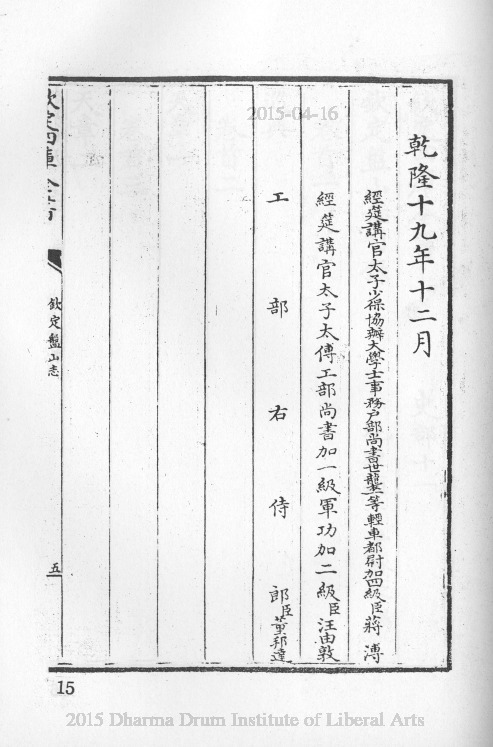 2015-04-16
乾隆十九年十二月
經筵講官太子少保協辦大學士事務戶部尚書世襲一等輕車都尉加四級臣蔣溥
經筵講官太子太傅工部尚書加一級軍功加二級臣汪由敦
工部右侍郎臣董邦達
欽定四庫全書
欽定盤山志
五
15
2015 Dharma Drum Institute of Liberal Arts